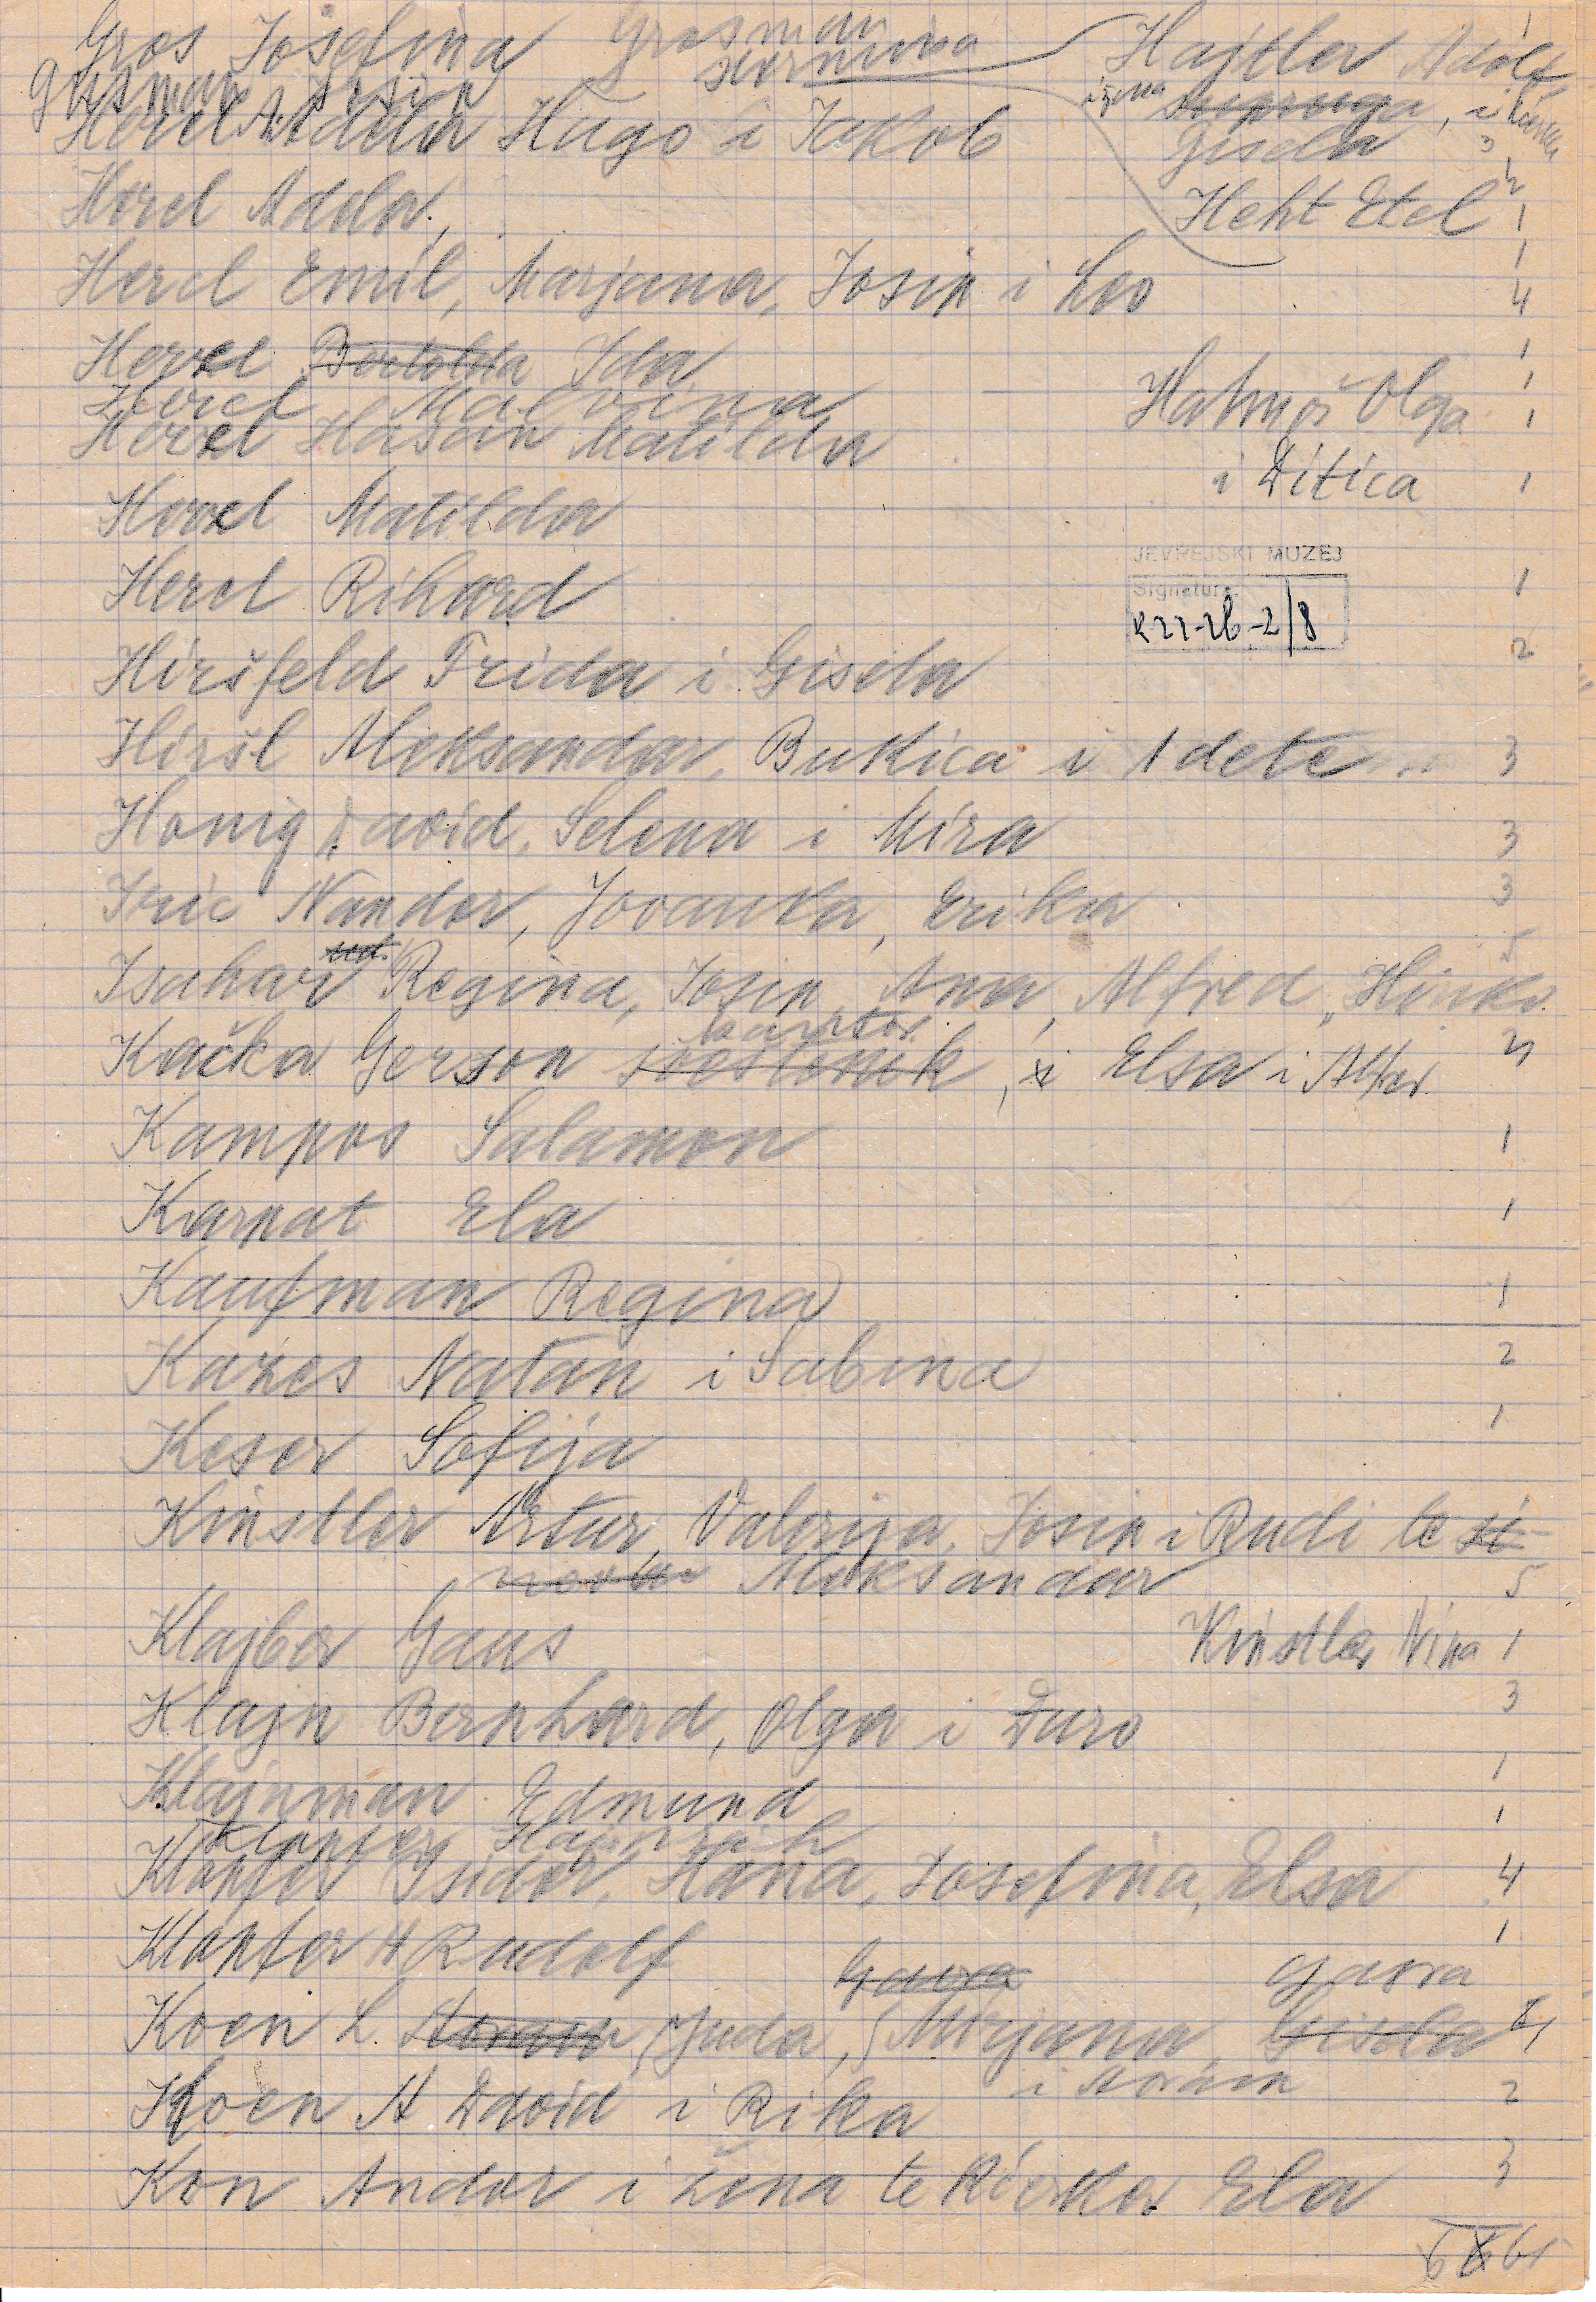 Gros Josefina Grosman Hermina Hajtler Adolf 1
Grosman Josip i žena supruga, i kćerka
Hercl A. Adela Hugo i Jakob Gisela 3
Hercl Adela, Heht Etel 1
1
Hercl Emil, Marjana, Josip i Leo 4
Hercl Bertolda Ida 1
Hercl Malvina Halmoš Olga 1
Hercl Hasan Matilda 1
i Ditica
Hercl Matilda 1
JEVREJSKI MUZEJ
Signatura:
K 22-2b-2/8
Hercl Rihard 1
Hiršfeld Frida i Gisela 2
Hiršl Aleksandar, Bukica i 1 dete 3
Honig David, Selena i Mira 3
Ivic Nandor, Jovanka, Erika 3
ud. 5
Isahar Regina, Josip, Ana, Alfred, Hinko.
kantor
Kačka Gerson sveštenik, i Elsa i Alfred
Kampos Salamon 1
Karnat Ela 1
Kaufman Regina 1
Kazes Natan i Sabina 2
Keser Sofija 1
Kinstler Artur, Valerija, Josip i Rudi te si-
novka Aleksandar 5
Klajber Gaus Kinstler Nina 1
Klajn Bernhard, Olga i Đuro 3
Klajnman Edmund 1
Klopfer Hajnrih 1
Klopfer Isidor, Hana, Josefina, Elsa 4
Klopfer H Rudolf 1
Gavra Gavra
Koen L. Avram, Juda, Mirjana, Gisela
i Avram
Koen A David i Rika 2
Kon Andor i žena te kćerka Ela 3
61